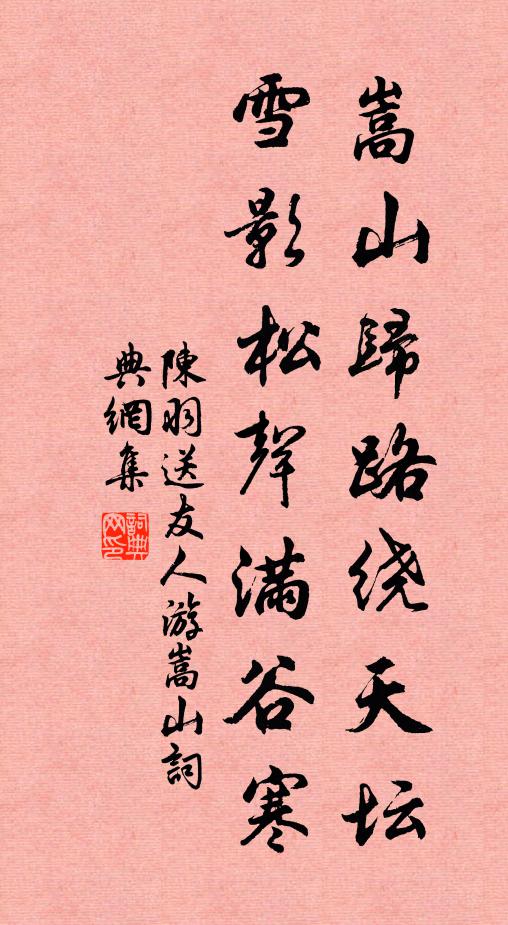 嵩山歸路绕天坛
雪影松聲满谷寒
陳羽送友人游嵩山詞
典網集
詞典
网印